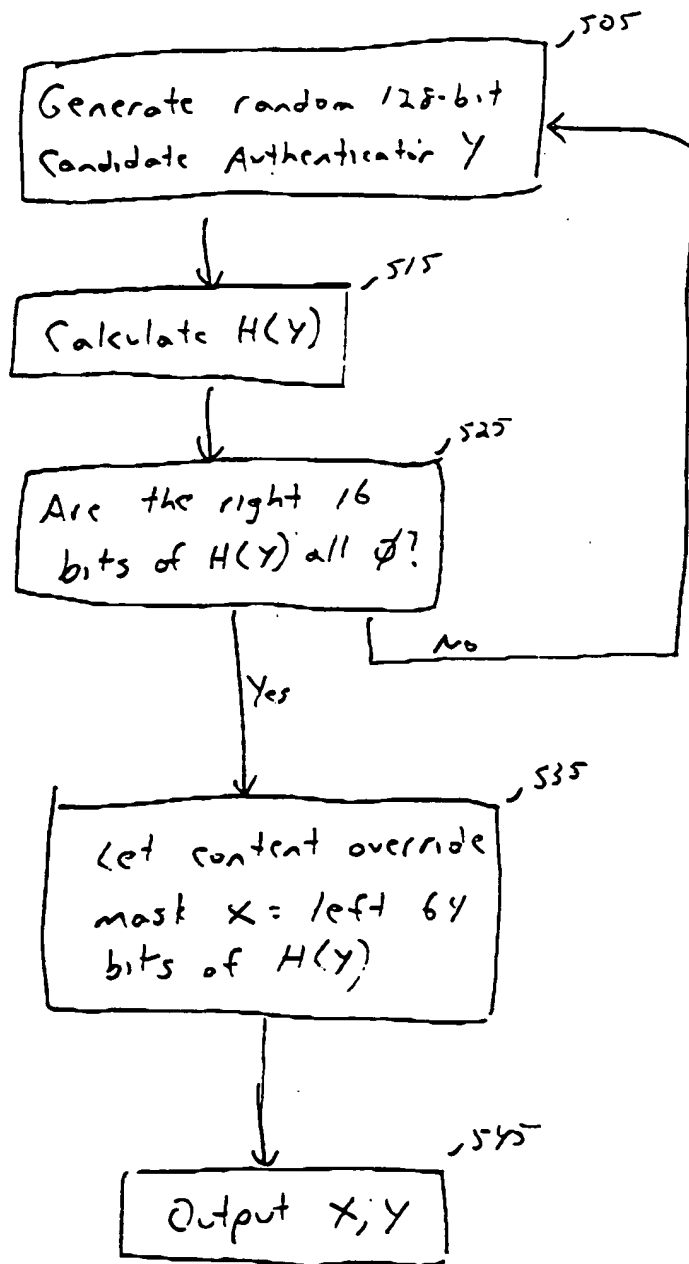 505
Generate random 128-bit
Candidate Authenticator Y
515
Calculate H(Y)
525
Are the right 16
bits of H(Y) all Ø?
No
Yes
535
Let content override
mask X = left 64
bits of H(Y)
545
Output X, Y